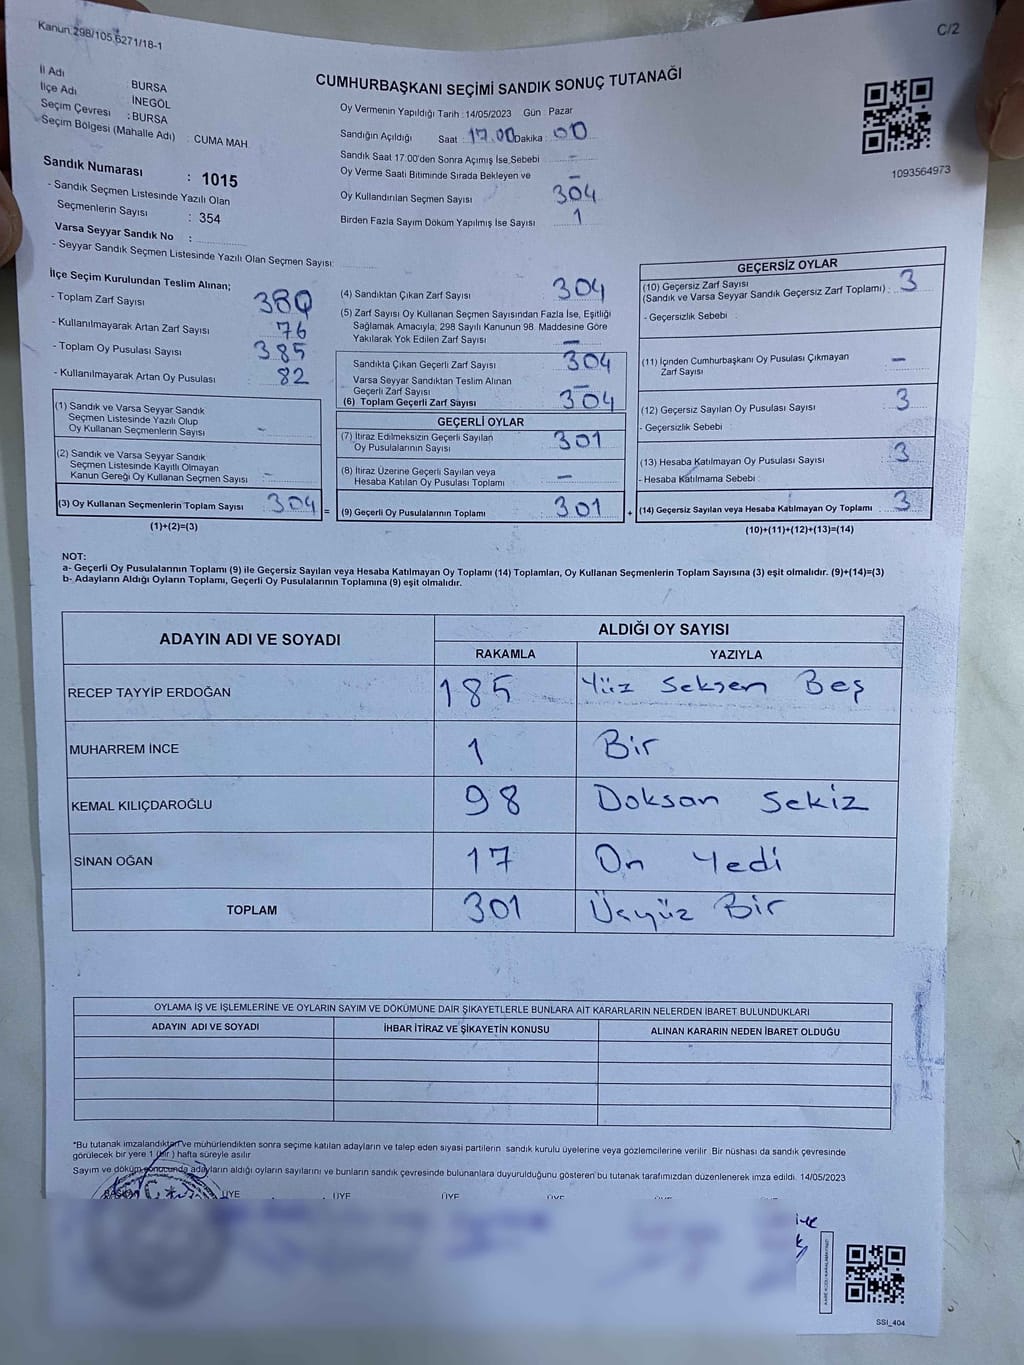 Kanun:298/105,6271/18-1
C/2
CUMHURBAŞKANI SEÇİMİ SANDIK SONUÇ TUTANAĞI
İl Adı : BURSA
İlçe Adı : İNEGÖL
Seçim Çevresi : BURSA
Seçim Bölgesi (Mahalle Adı) : CUMA MAH.
Sandık Numarası : 1015
- Sandık Seçmen Listesinde Yazılı Olan
Seçmenlerin Sayısı : 354
Varsa Seyyar Sandık No :
- Seyyar Sandık Seçmen Listesinde Yazılı Olan Seçmen Sayısı:
Oy Vermenin Yapıldığı Tarih :14/05/2023 Gün : Pazar
Sandığın Açıldığı Saat : 17.00 Dakika : 00
Sandık Saat 17:00'den Sonra Açımış İse Sebebi : -
Oy Verme Saati Bitiminde Sırada Bekleyen ve -
Oy Kullandırılan Seçmen Sayısı 304
Birden Fazla Sayım Döküm Yapılmış İse Sayısı 1
1093564973
İlçe Seçim Kurulundan Teslim Alınan;
- Toplam Zarf Sayısı 380
- Kullanılmayarak Artan Zarf Sayısı 76
- Toplam Oy Pusulası Sayısı 385
- Kullanılmayarak Artan Oy Pusulası 82
(1) Sandık ve Varsa Seyyar Sandık
Seçmen Listesinde Yazılı Olup
Oy Kullanan Seçmenlerin Sayısı -
(2) Sandık ve Varsa Seyyar Sandık
Seçmen Listesinde Kayıtlı Olmayan
Kanun Gereği Oy Kullanan Seçmen Sayısı -
(3) Oy Kullanan Seçmenlerin Toplam Sayısı 304 =
(1)+(2)=(3)
(4) Sandıktan Çıkan Zarf Sayısı 304
(5) Zarf Sayısı Oy Kullanan Seçmen Sayısından Fazla İse, Eşitliği
Sağlamak Amacıyla, 298 Sayılı Kanunun 98. Maddesine Göre
Yakılarak Yok Edilen Zarf Sayısı -
Sandıkta Çıkan Geçerli Zarf Sayısı 304
Varsa Seyyar Sandıktan Teslim Alınan
Geçerli Zarf Sayısı -
(6) Toplam Geçerli Zarf Sayısı 304
GEÇERLİ OYLAR
(7) İtiraz Edilmeksizin Geçerli Sayılan
Oy Pusulalarının Sayısı 301
(8) İtiraz Üzerine Geçerli Sayılan veya
Hesaba Katılan Oy Pusulası Toplamı -
(9) Geçerli Oy Pusulalarının Toplamı 301 +
GEÇERSİZ OYLAR
(10) Geçersiz Zarf Sayısı
(Sandık ve Varsa Seyyar Sandık Geçersiz Zarf Toplamı) : 3
- Geçersizlik Sebebi :
(11) İçinden Cumhurbaşkanı Oy Pusulası Çıkmayan
Zarf Sayısı -
(12) Geçersiz Sayılan Oy Pusulası Sayısı 3
- Geçersizlik Sebebi :
(13) Hesaba Katılmayan Oy Pusulası Sayısı 3
- Hesaba Katılmama Sebebi :
(14) Geçersiz Sayılan veya Hesaba Katılmayan Oy Toplamı 3
(10)+(11)+(12)+(13)=(14)
NOT:
a- Geçerli Oy Pusulalarının Toplamı (9) ile Geçersiz Sayılan veya Hesaba Katılmayan Oy Toplamı (14) Toplamları, Oy Kullanan Seçmenlerin Toplam Sayısına (3) eşit olmalıdır. (9)+(14)=(3)
b- Adayların Aldığı Oyların Toplamı, Geçerli Oy Pusulalarının Toplamına (9) eşit olmalıdır.
ADAYIN ADI VE SOYADI ALDIĞI OY SAYISI
RAKAMLA YAZIYLA
RECEP TAYYİP ERDOĞAN 185 Yüz Seksen Beş
MUHARREM İNCE 1 Bir
KEMAL KILIÇDAROĞLU 98 Doksan Sekiz
SİNAN OĞAN 17 On Yedi
TOPLAM 301 Üçyüz Bir
OYLAMA İŞ VE İŞLEMLERİNE VE OYLARIN SAYIM VE DÖKÜMÜNE DAİR ŞİKAYETLERLE BUNLARA AİT KARARLARIN NELERDEN İBARET BULUNDUKLARI
ADAYIN ADI VE SOYADI İHBAR İTİRAZ VE ŞİKAYETİN KONUSU ALINAN KARARIN NEDEN İBARET OLDUĞU
*Bu tutanak imzalandıktan ve mühürlendikten sonra seçime katılan adayların ve talep eden siyasi partilerin sandık kurulu üyelerine veya gözlemcilerine verilir. Bir nüshası da sandık çevresinde
görülecek bir yere 1 (bir) hafta süreyle asılır.
Sayım ve döküm sonucunda adayların aldığı oyların sayılarını ve bunların sandık çevresinde bulunanlara duyurulduğunu gösteren bu tutanak tarafımızdan düzenlenerek imza edildi. 14/05/2023
BAŞKAN ÜYE ÜYE ÜYE ÜYE
SSI_404